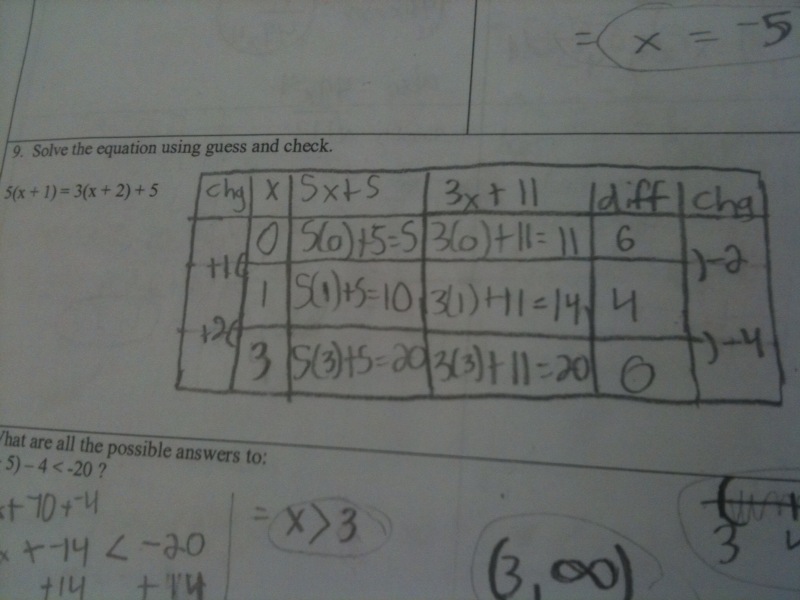 = x = -5
9. Solve the equation using guess and check.
5(x + 1) = 3(x + 2) + 5
chg x 5x+5 3x + 11 diff chg
0 5(0)+5=5 3(0)+11= 11 6
+1 -2
1 5(1)+5=10 3(1)+11=14 4
+2 -4
3 5(3)+5=20 3(3)+11=20 0
What are all the possible answers to:
5) – 4 < -20 ?
x+70+-4
= x>3
x + -14 < -20
+14 +14
(3, ∞)
( 3 4